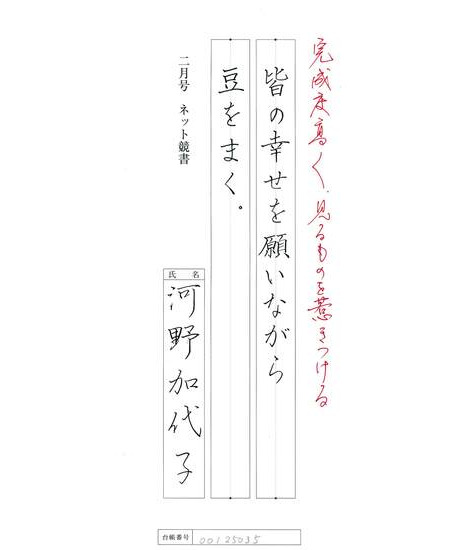 完成度高く、見るものを惹きつける
皆の幸せを願いながら
豆をまく。
二月号 ネット競書
氏名
河野加代子
台帳番号 00125035